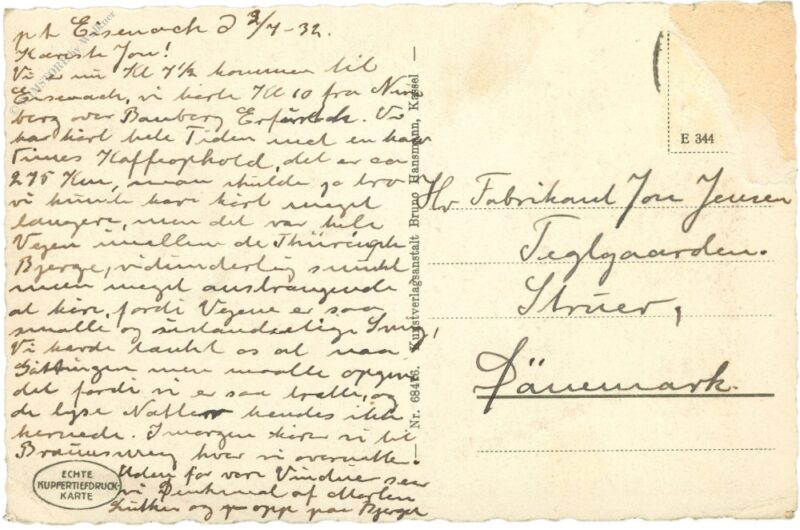 pt Eisenach d 2/7-32.
Kæreste Jon!
Vi er nu Kl 7½ kommen til
Eisenach, vi kørte Kl 10 fra Nürn
berg over Bamberg Erfurt. Vi
har kørt hele Tiden med en halv
Times Kaffeophold, det er ca
275 Km, man skulde jo tro
vi kunde have kørt meget
længere, men det var hele
Vejen imellem de Thüringske
Bjerge, vidunderlig smukt
men meget anstrængende
at køre, fordi Vejene er saa
smalle og Sving,
Vi havde tænkt os at naa
Göttingen men maatte opgive
det fordi vi er saa trætte, og
de lyse Nætter kendes ikk
hernede. I morgen kører vi til
Braunsweig hvor vi overnatter.
Uden for vore Vindue ser
vi Denkmal af Morten
Luther og op paa Bjerget
ECHTE
KUPFERTIEFDRUCK-
KARTE
Nr. 68416. Kunstverlagsanstalt Bruno Hansmann, Kassel
E 344
Hr Fabrikant Jon Jensen
Teglgaarden.
Struer,
Dänemark.